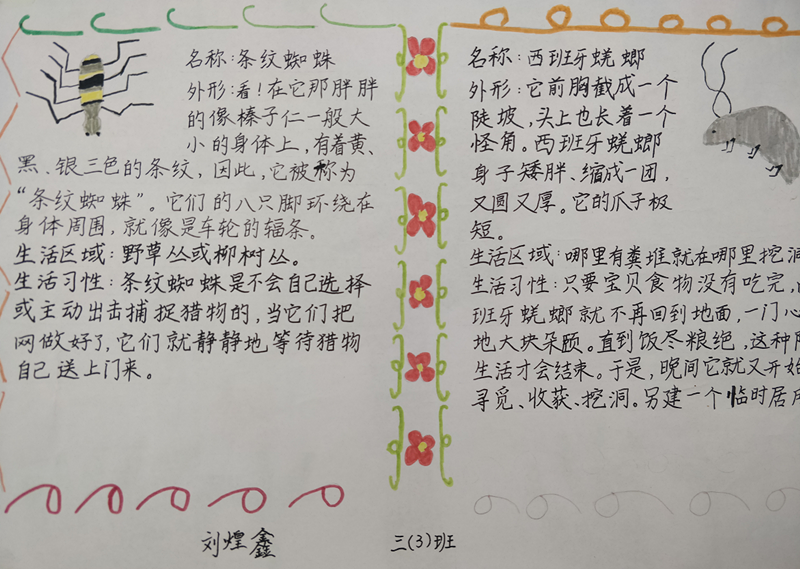 名称:条纹蜘蛛
外形:看!在它那胖胖
的像榛子仁一般大
小的身体上,有着黄、
黑、银三色的条纹,因此,它被称为
“条纹蜘蛛”。它们的八只脚环绕在
身体周围,就像是车轮的辐条。
生活区域:野草丛或柳树丛。
生活习性:条纹蜘蛛是不会自己选择
或主动出击捕捉猎物的,当它们把
网做好了,它们就静静地等待猎物
自己送上门来。
名称:西班牙蜣螂
外形:它前胸截成一个
陡坡,头上也长着一个
怪角。西班牙蜣螂
身子矮胖、缩成一团,
又圆又厚。它的爪子极
短。
生活区域:哪里有粪堆就在哪里挖洞
生活习性:只要宝贝食物没有吃完,
班牙蜣螂就不再回到地面,一门心
地大块朵颐。直到饭尽粮绝,这种
生活才会结束。于是,晚间它就又开始
寻觅、收获、挖洞。另建一个临时居
刘煌鑫
三(3)班